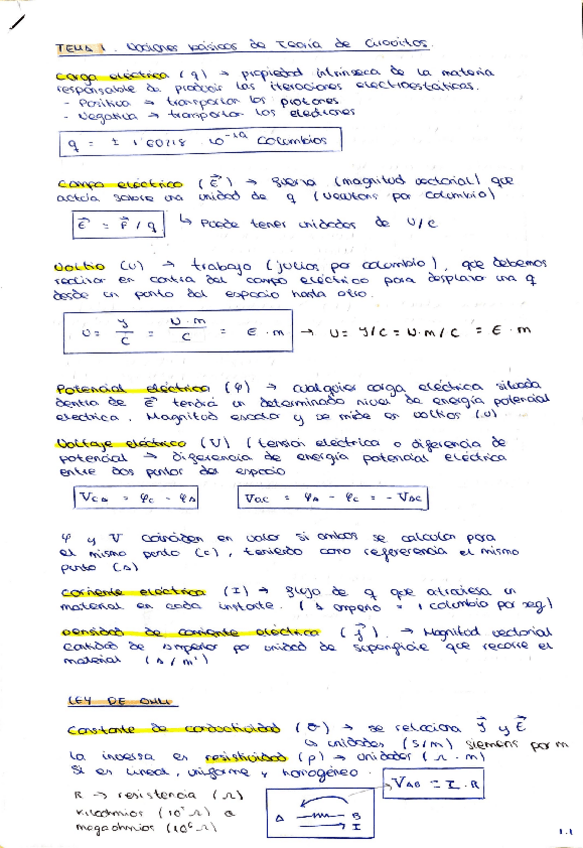 TEMA 1. Nociones básicas de Teoría de Circuitos.
Carga eléctrica (q) → propiedad intrínseca de la materia
responsable de producir las iteraciones electrostáticas.
- Positiva → transportan los protones
- Negativa → transportan los electrones
q = ± 1,60218 · 10⁻¹⁹ Coulombios
Campo eléctrico (E⃗) → fuerza (magnitud vectorial) que
actúa sobre una unidad de q (Newtons por Coulombio)
E⃗ = F⃗ / q ↳ Puede tener unidades de N/C
Voltio (V) → trabajo (julios por coulombio), que debemos
realizar en contra del campo eléctrico para desplazar una q
desde un punto del espacio hasta otro.
V = J/C = N·m/C = E · m → V = J/C = N·m/C = E · m
Potencial eléctrico (φ) → cualquier carga eléctrica situada
dentro de E⃗ tendrá un determinado nivel de energía potencial
eléctrica. Magnitud escalar y se mide en voltios (V).
Voltaje eléctrico (V) (tensión eléctrica o diferencia de
potencial → diferencia de energía potencial eléctrica
entre dos puntos del espacio
V_CA = φ_C - φ_A V_AC = φ_A - φ_C = - V_CA
φ y V coinciden en valor si ambos se calculan para
el mismo punto (C), teniendo como refererencia el mismo
punto (A)
Corriente eléctrica (I) → flujo de q que atraviesa un
material en cada instante. (1 amperio = 1 coulombio por seg)
Densidad de corriente eléctrica (J⃗). → Magnitud vectorial
cantidad de amperior por unidad de superficie que recorre el
material (A/m²)
LEY DE OHM
Constante de conductividad (σ) → se relaciona J⃗ y E⃗
↳ unidades (S/m) siemens por m
La inversa es resistividad (ρ) → unidades (Ω · m)
Si es lineal, uniforme y homogéneo.
V_AB = I · R
R → resistencia (Ω)
kiloohmios (10³ Ω) o
megaohmios (10⁶ Ω)
A B
I
1.1